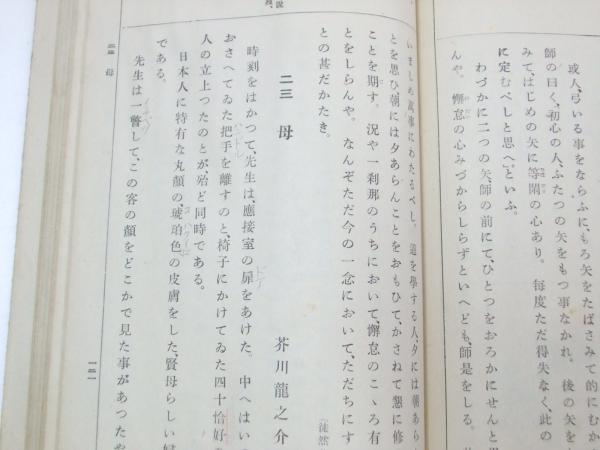 或人、弓いる事をならふに、もろ矢をたばさみて的にむか
師の曰く、初心の人、ふたつの矢をもつ事なかれ。後の矢を
みて、はじめの矢に等閑の心あり。毎度ただ得失なく、此の
に定むべしと思へ。」といふ。
わづかに二つの矢、師の前にて、ひとつをおろかにせんと思
んや。懈怠の心みづからしらずといへども、師是をしる。
いましめ萬事にわたるべし。道を學する人、夕には朝あら
とを思ひ、朝には夕あらんことをおもひて、かさねて懇に修
ことを期す。況や一刹那のうちにおいて、懈怠のこゝろ有
とをしらんや。なんぞただ今の一念において、ただちにす
との甚だかたき。
(徒然
二三 母
芥川龍之介
時刻をはかつて、先生は、應接室の扉をあけた。中へはい
おさへてゐた把手を離すのと、椅子にかけてゐた四十恰好
人の立上つたのとが、殆ど同時である。
日本人に特有な丸顔の、琥珀色の皮膚をした、賢母らしい
である。
先生は一瞥して、この客の顔をどこかで見た事があつたや
二三 母
一二一